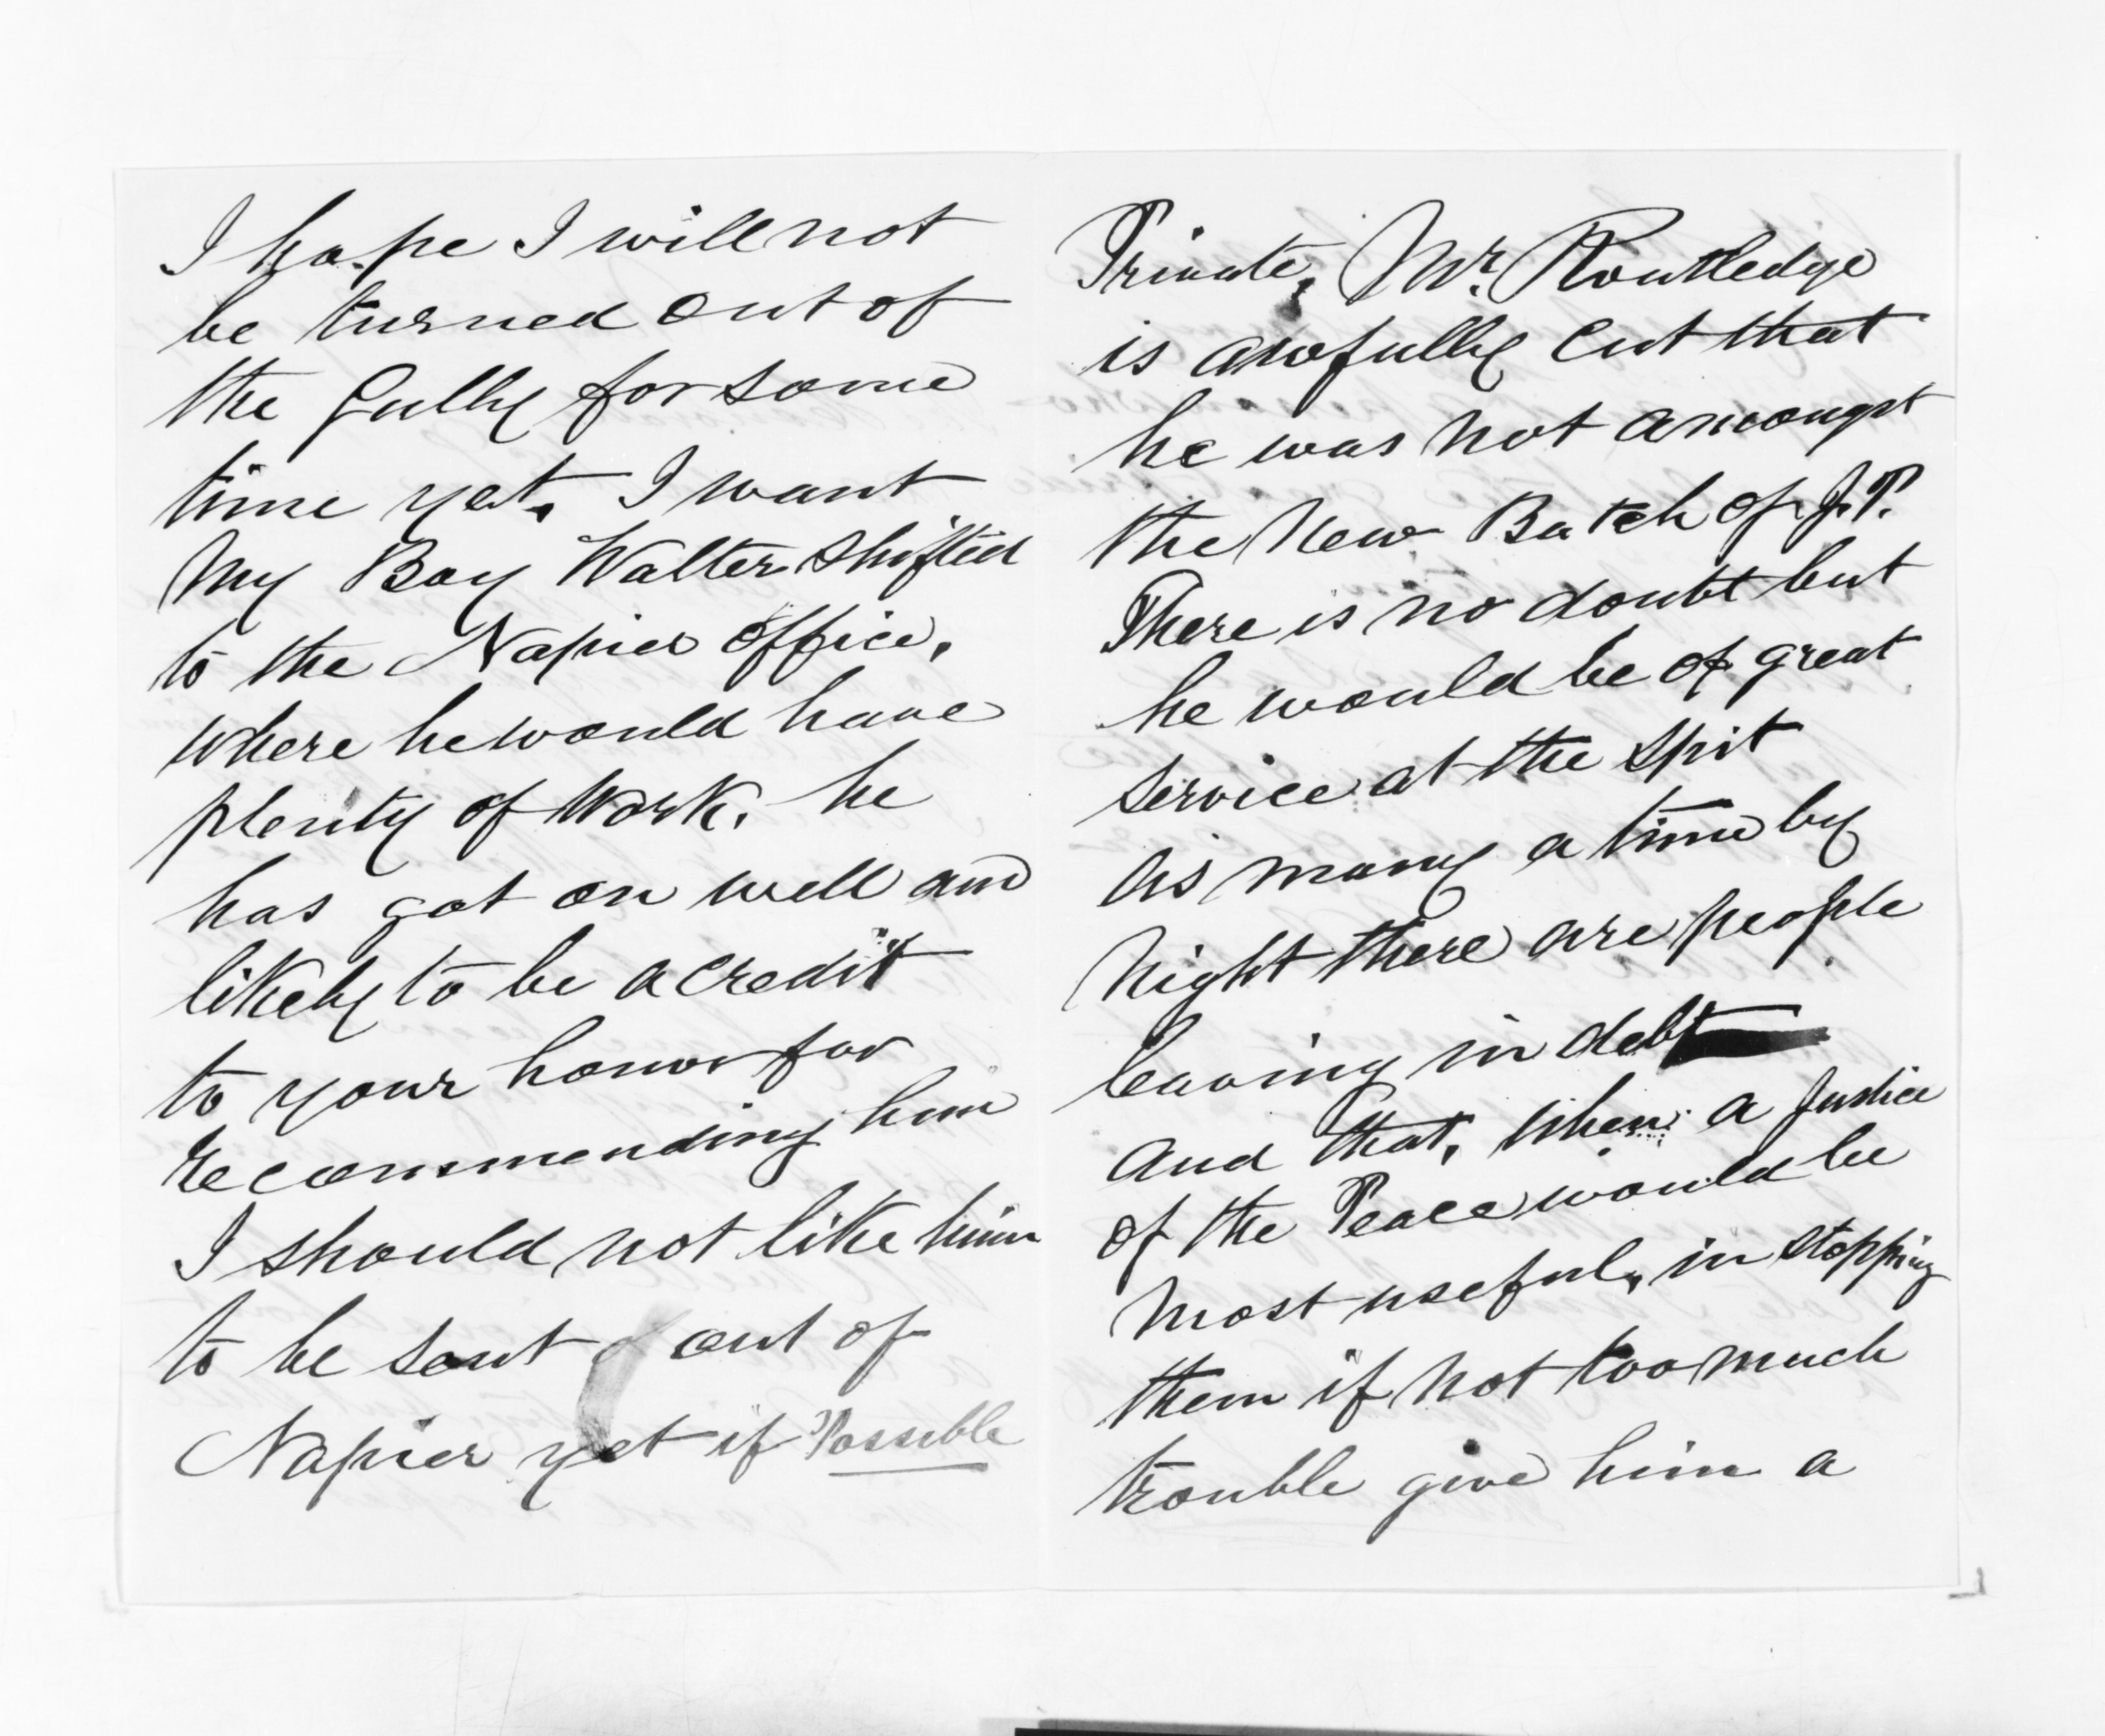 I hope I will not
be turned out of
the Gully for some
time yet. I want
My Boy Walter shifted
to the Napier office,
where he would have
plenty of work. he
has got on well and
likely to be a credit
to your honor for
recommending him
I should not like him
to be sent out of
Napier yet if Possible
Private, Mr. Routledge
is awfully cut that
he was not amongst
the New Batch of J.P.
There is no doubt but
he would be of great
service at the Spit
as many a time by
Night there are people
leaving in debt
and that, when a Justice
of the Peace would be
most useful, in stopping
them if not too much
trouble give him a